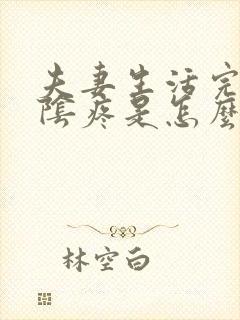 夫妻生活完
陰疼是怎麼
林空白